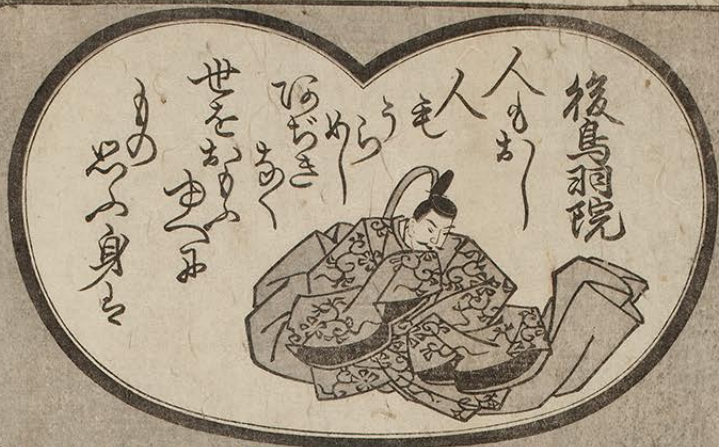 後鳥羽院
人もおし
人毛
うら
めし
阿ぢき
なく
世を
おもふ
ゆへに
もの
思ふ身は